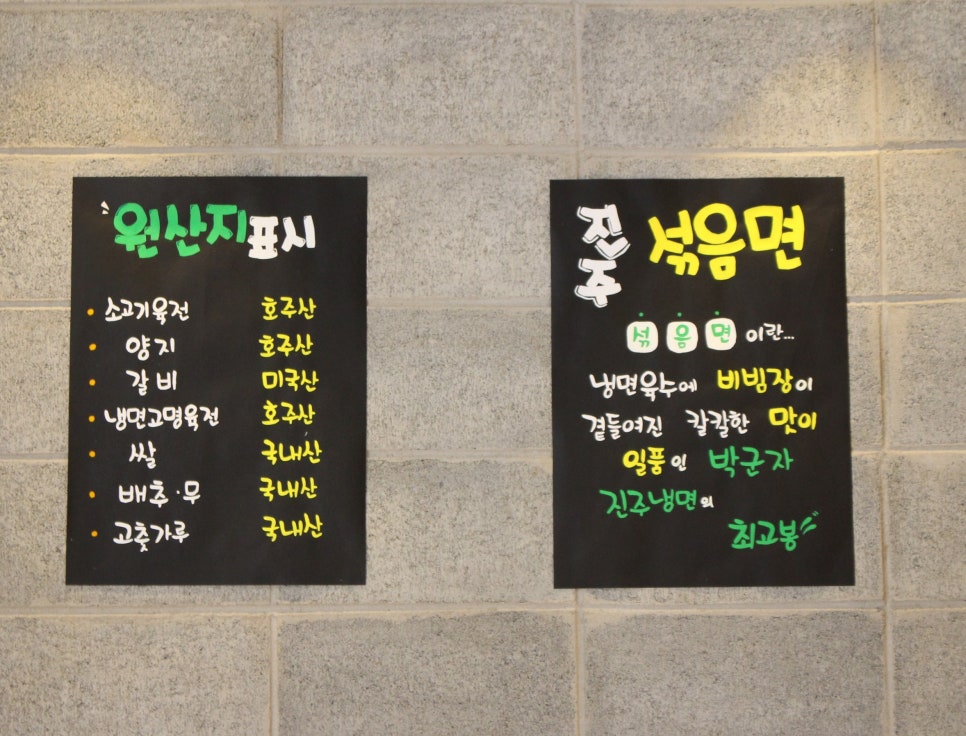 원산지표시
소고기육전 호주산
양지 호주산
갈비 미국산
냉면고명육전 호주산
쌀 국내산
배추·무 국내산
고춧가루 국내산
진주 섞음면
섞음면이란...
냉면육수에 비빔장이
곁들여진 칼칼한 맛이
일품인 박군자
진주냉면의
최고봉